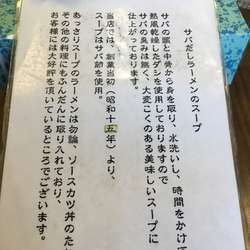 サバだしラーメンのスープ
サバの頭と中骨から身を取り、水洗いし、時間をかけて
熱風乾燥したダシを使用しておりますので
サバの臭みは無く、大変こくのある美味しいスープに
仕上がっております。
当店では、創業当時(昭和十五年)より、
スープはサバ節を使用。
あっさりスープのラーメンは勿論、ソースカツ丼のたれ
その他の料理にもふんだんに取り入れており、
お客様には大好評を頂いているところでございます。